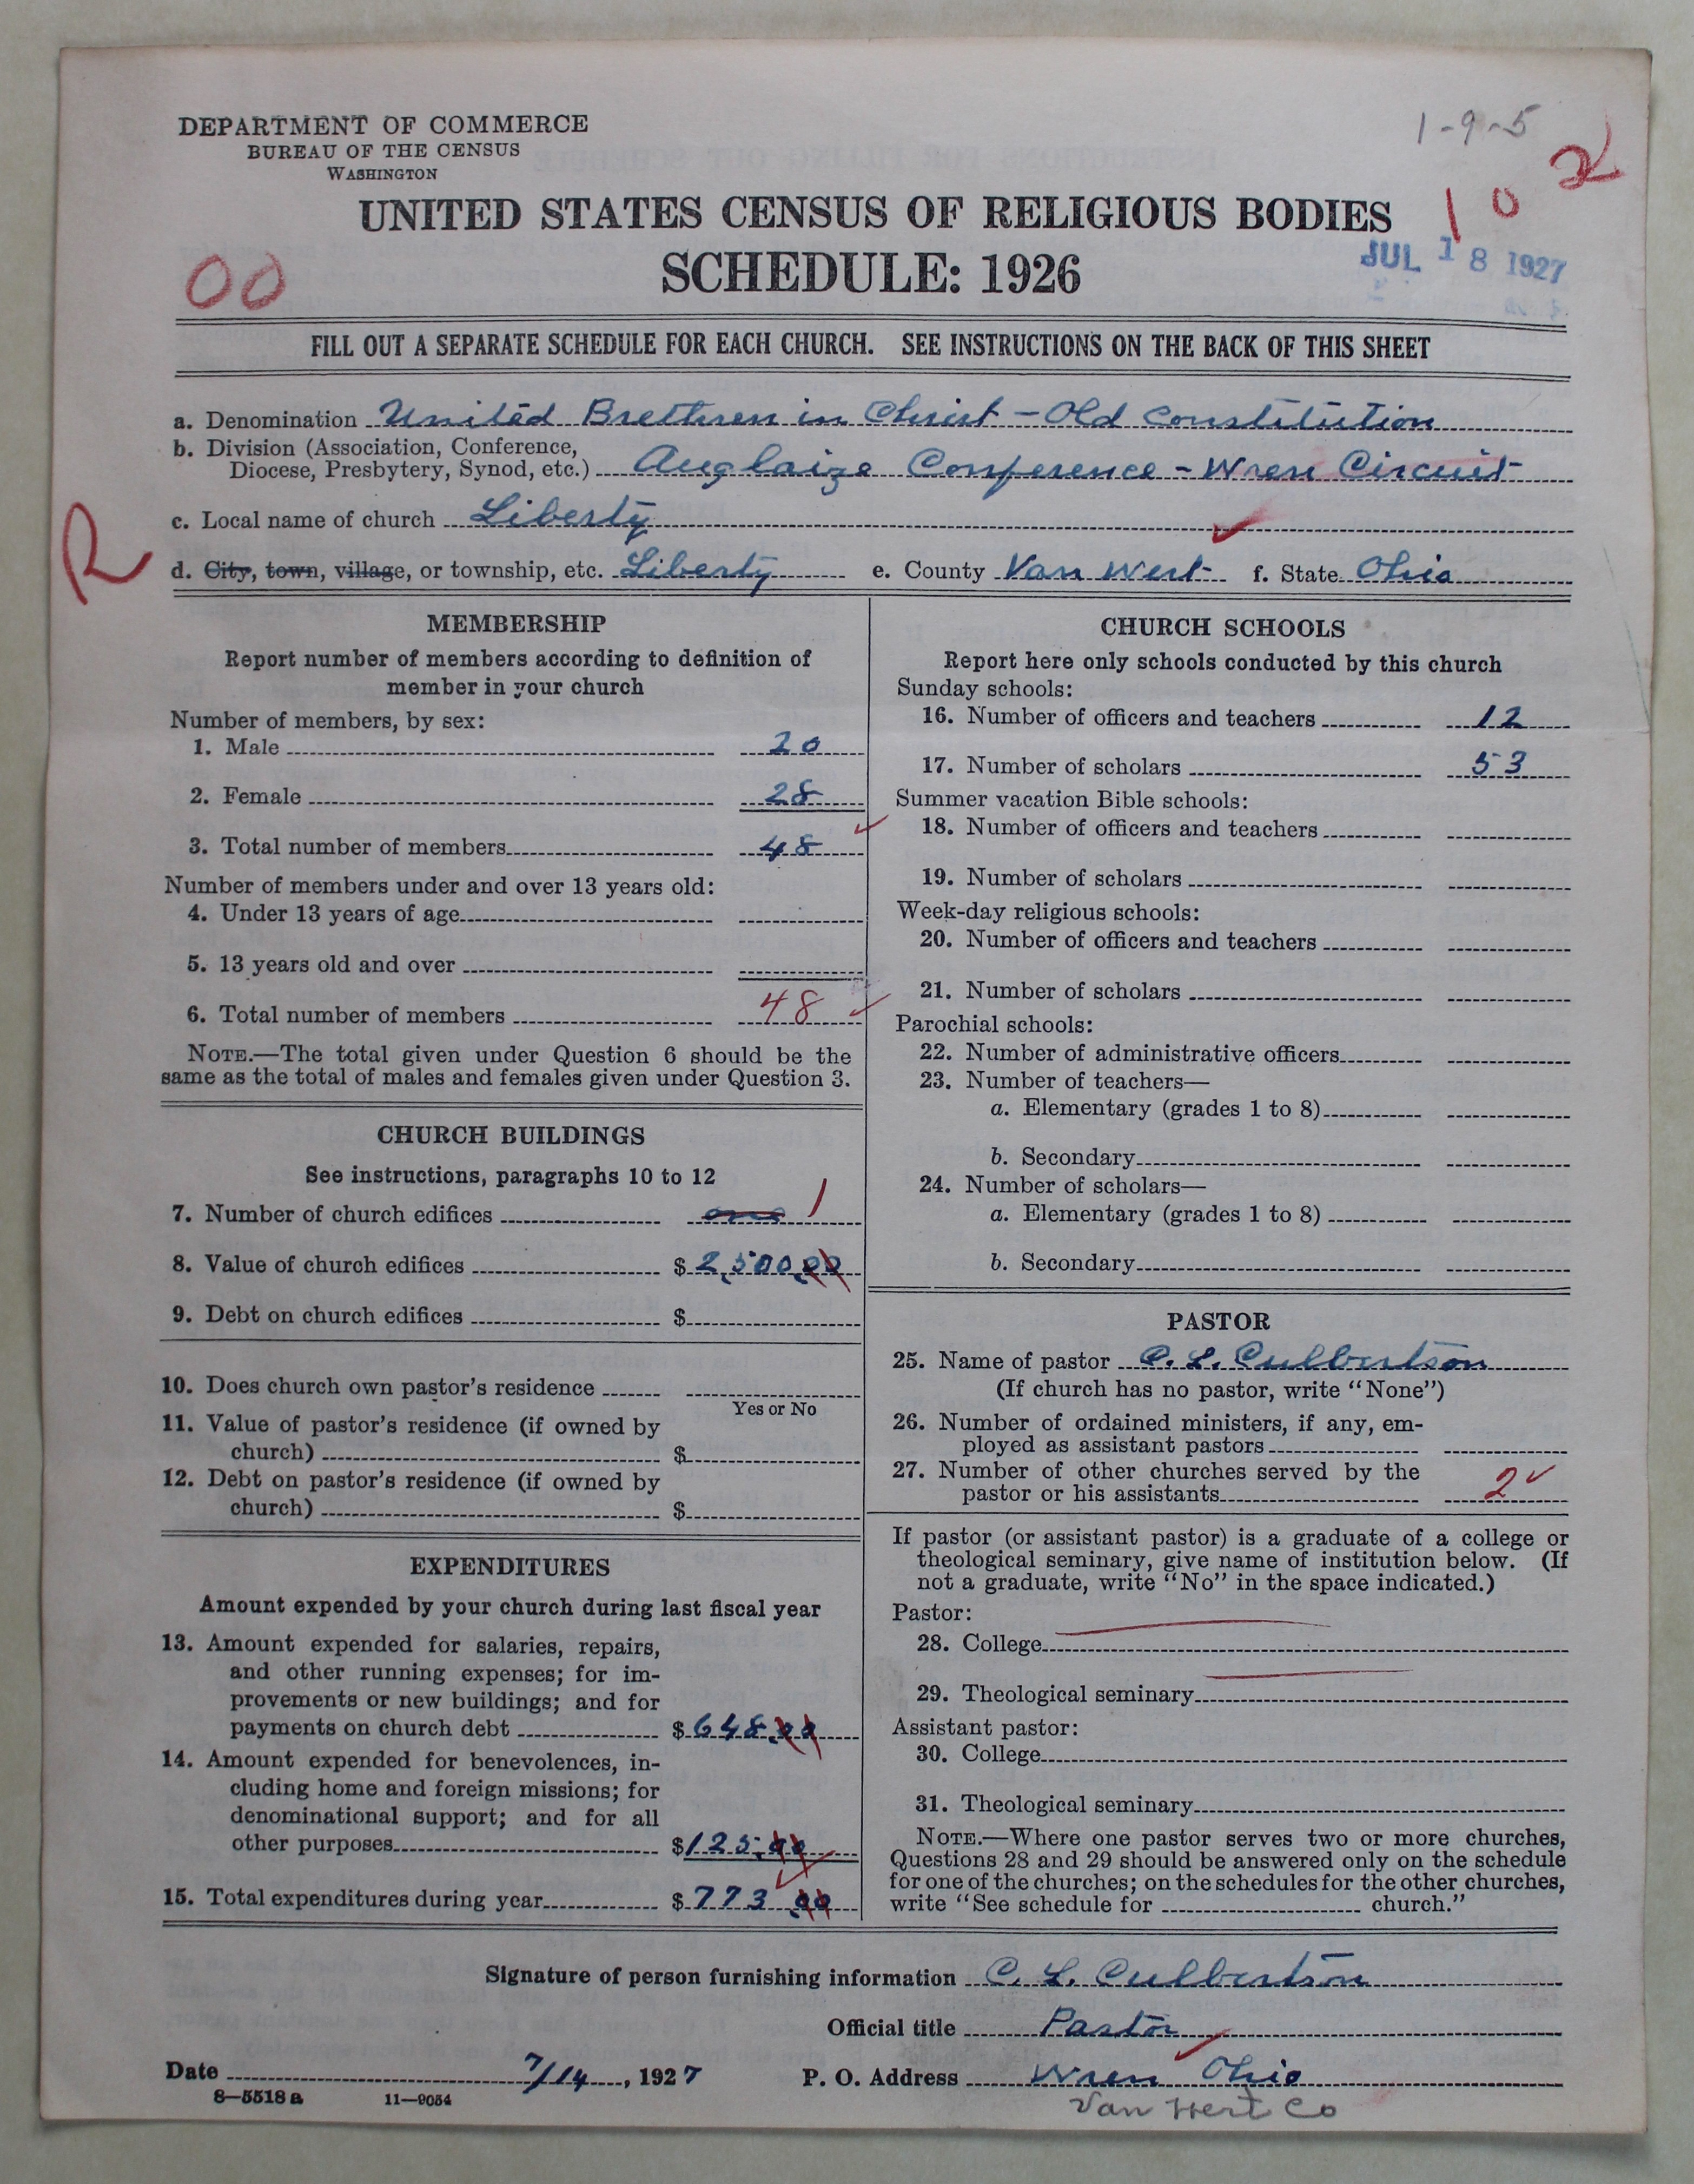 1-9-5
DEPARTMENT OF COMMERCE
BUREAU OF THE CENSUS
WASHINGTON
102
UNITED STATES CENSUS OF RELIGIOUS BODIES
SCHEDULE: 1926
JUL 18 1927
00
FILL OUT A SEPARATE SCHEDULE FOR EACH CHURCH. SEE INSTRUCTIONS ON THE BACK OF THIS SHEET
a. Denomination United Brethren in Christ - Old Constitution
b. Division (Association, Conference,
Diocese, Presbytery, Synod, etc.) Auglaize Conference - Wren Circuit
R
c. Local name of church Liberty
d. City, town, village, or township, etc. Liberty e. County Van Wert f. State Ohio
MEMBERSHIP
Report number of members according to definition of
member in your church
Number of members, by sex:
1. Male 20
2. Female 28
3. Total number of members 48
Number of members under and over 13 years old:
4. Under 13 years of age
5. 13 years old and over
6. Total number of members 48
NOTE.—The total given under Question 6 should be the
same as the total of males and females given under Question 3.
CHURCH BUILDINGS
See instructions, paragraphs 10 to 12
7. Number of church edifices one 1
8. Value of church edifices $ 2,500.00
9. Debt on church edifices $
10. Does church own pastor's residence
Yes or No
11. Value of pastor's residence (if owned by
church) $
12. Debt on pastor's residence (if owned by
church) $
EXPENDITURES
Amount expended by your church during last fiscal year
13. Amount expended for salaries, repairs,
and other running expenses; for im-
provements or new buildings; and for
payments on church debt $ 648.00
14. Amount expended for benevolences, in-
cluding home and foreign missions; for
denominational support; and for all
other purposes $ 125.00
15. Total expenditures during year $ 773.00
CHURCH SCHOOLS
Report here only schools conducted by this church
Sunday schools:
16. Number of officers and teachers 12
17. Number of scholars 53
Summer vacation Bible schools:
18. Number of officers and teachers
19. Number of scholars
Week-day religious schools:
20. Number of officers and teachers
21. Number of scholars
Parochial schools:
22. Number of administrative officers
23. Number of teachers—
a. Elementary (grades 1 to 8)
b. Secondary
24. Number of scholars—
a. Elementary (grades 1 to 8)
b. Secondary
PASTOR
25. Name of pastor C. L. Culbertson
(If church has no pastor, write "None")
26. Number of ordained ministers, if any, em-
ployed as assistant pastors
27. Number of other churches served by the
pastor or his assistants 2
If pastor (or assistant pastor) is a graduate of a college or
theological seminary, give name of institution below. (If
not a graduate, write "No" in the space indicated.)
Pastor:
28. College
29. Theological seminary
Assistant pastor:
30. College
31. Theological seminary
NOTE.—Where one pastor serves two or more churches,
Questions 28 and 29 should be answered only on the schedule
for one of the churches; on the schedules for the other churches,
write "See schedule for church."
Signature of person furnishing information C. L. Culbertson
Official title Pastor
Date 7/14, 1927 P. O. Address Wren Ohio
8—5518 a 11—9054
Van Wert Co